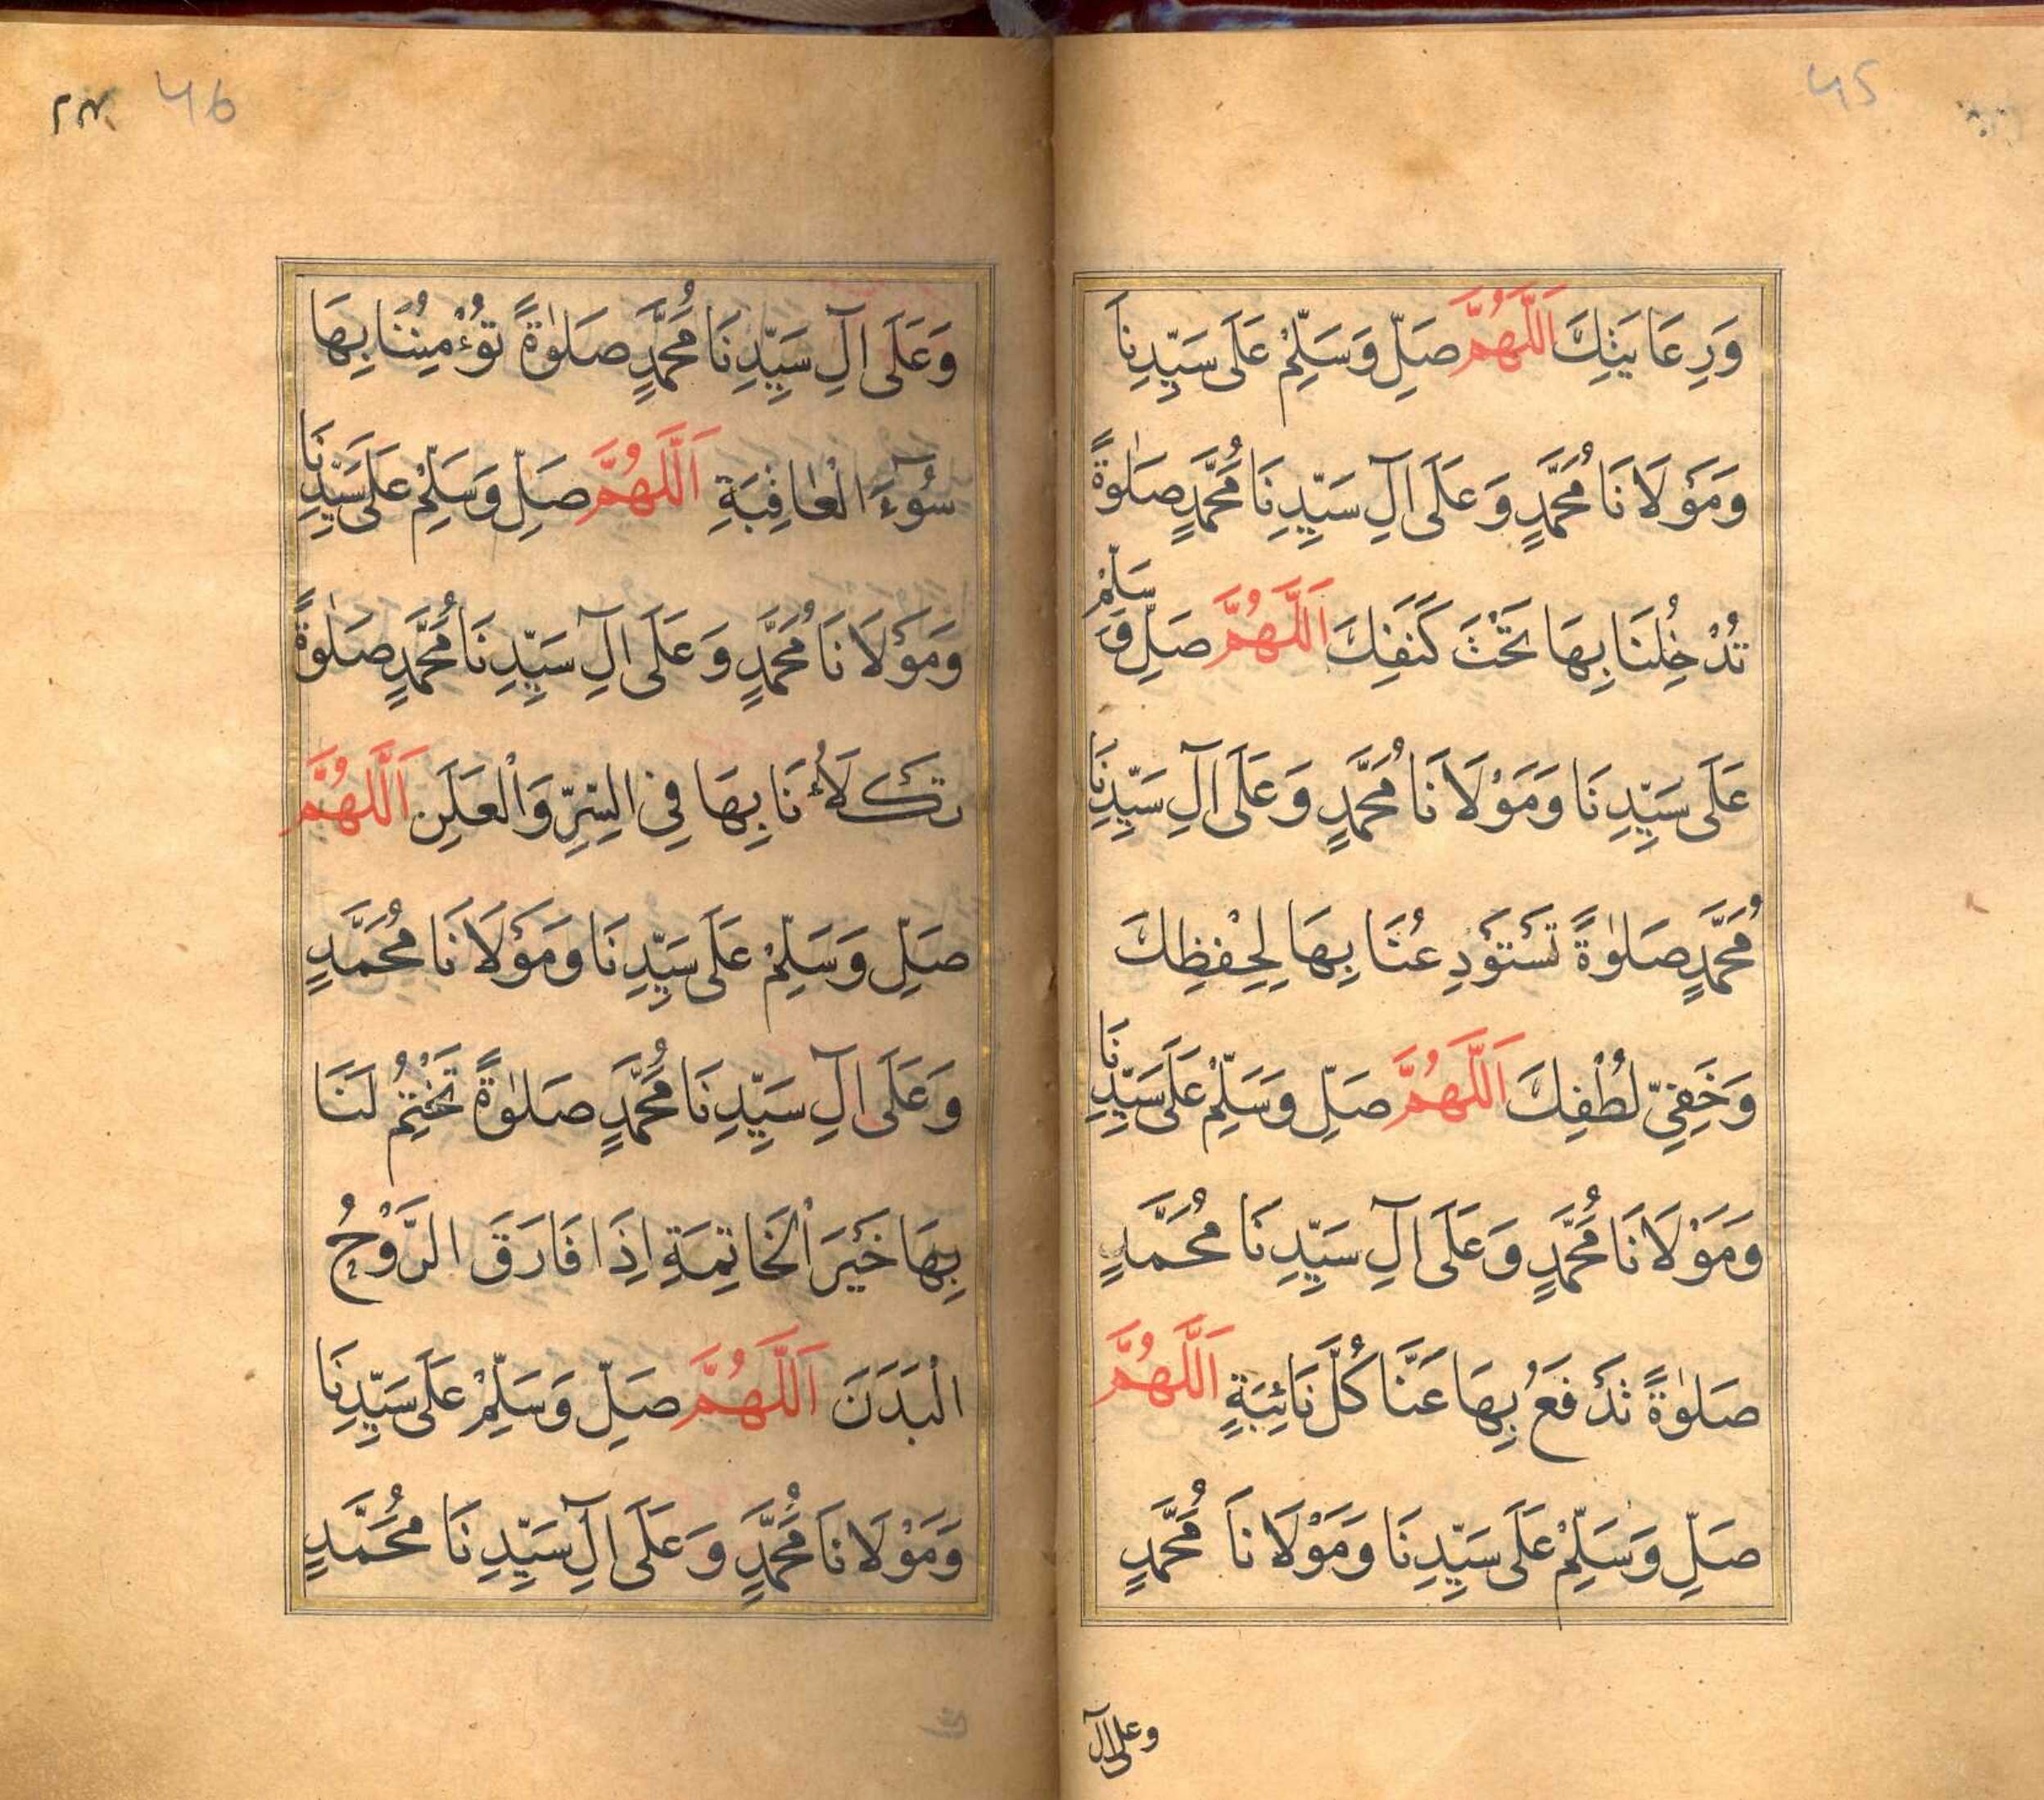 45
وَرِعَايَتِكَ اَللّٰهُمَّ صَلِّ وَسَلِّمْ عَلَى سَيِّدِنَا
وَمَوْلَانَا مُحَمَّدٍ وَعَلَى اٰلِ سَيِّدِنَا مُحَمَّدٍ صَلٰوةً
تُدْخِلُنَا بِهَا تَحْتَ كَنَفِكَ اَللّٰهُمَّ صَلِّ وَسَلِّمْ
عَلَى سَيِّدِنَا وَمَوْلَانَا مُحَمَّدٍ وَعَلَى اٰلِ سَيِّدِنَا
مُحَمَّدٍ صَلٰوةً تَسْتَوْدِعُنَا بِهَا لِحِفْظِكَ
وَخَفِيِّ لُطْفِكَ اَللّٰهُمَّ صَلِّ وَسَلِّمْ عَلَى سَيِّدِنَا
وَمَوْلَانَا مُحَمَّدٍ وَعَلَى اٰلِ سَيِّدِنَا مُحَمَّدٍ
صَلٰوةً تَدْفَعُ بِهَا عَنَّا كُلَّ نَائِبَةٍ اَللّٰهُمَّ
صَلِّ وَسَلِّمْ عَلَى سَيِّدِنَا وَمَوْلَانَا مُحَمَّدٍ
وعلى آل
46
وَعَلَى اٰلِ سَيِّدِنَا مُحَمَّدٍ صَلٰوةً تُؤْمِنُنَا بِهَا
سُوٓءَ الْعَاقِبَةِ اَللّٰهُمَّ صَلِّ وَسَلِّمْ عَلَى سَيِّدِنَا
وَمَوْلَانَا مُحَمَّدٍ وَعَلَى اٰلِ سَيِّدِنَا مُحَمَّدٍ صَلٰوةً
تَكْلَأُنَا بِهَا فِي السِّرِّ وَالْعَلَنِ اَللّٰهُمَّ
صَلِّ وَسَلِّمْ عَلَى سَيِّدِنَا وَمَوْلَانَا مُحَمَّدٍ
وَعَلَى اٰلِ سَيِّدِنَا مُحَمَّدٍ صَلٰوةً تَخْتِمُ لَنَا
بِهَا خَيْرَ الْخَاتِمَةِ اِذَا فَارَقَ الرَّوْحُ
الْبَدَنَ اَللّٰهُمَّ صَلِّ وَسَلِّمْ عَلَى سَيِّدِنَا
وَمَوْلَانَا مُحَمَّدٍ وَعَلَى اٰلِ سَيِّدِنَا مُحَمَّدٍ